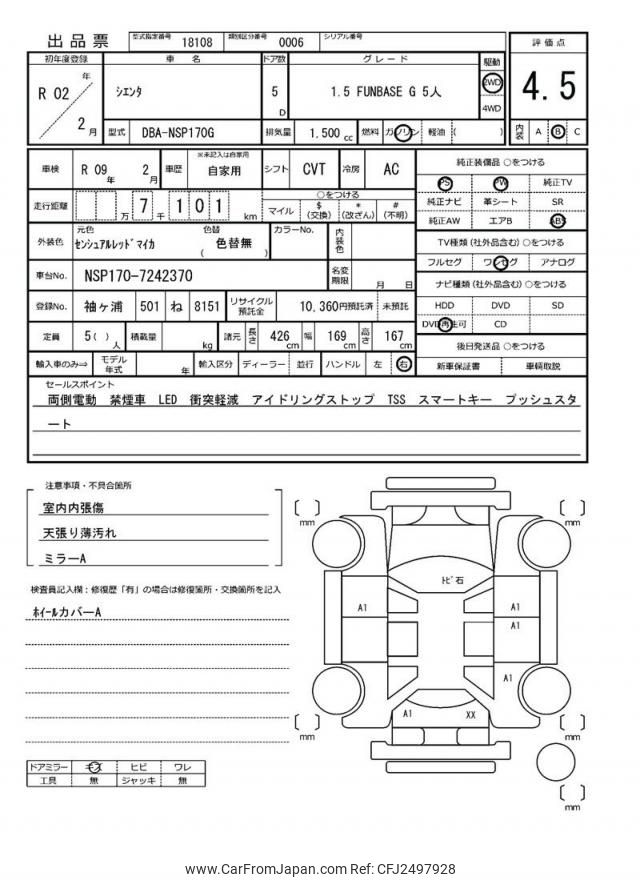 出品票
型式指定番号 18108 類別区分番号 0006 シリアル番号
評価点
4.5
内装 A B C
初年度登録 車名 ドア数 グレード 駆動
R 02 年 2 月 シエンタ 5 D 1.5 FUNBASE G 5人 2WD
4WD
型式 DBA-NSP170G 排気量 1.500 cc 燃料 ガソリン 軽油 ( )
車検 R 09 年 2 月 車歴 ※未記入は自家用 自家用 シフト CVT 冷房 AC
走行距離 万 7 千 1 0 1 km
○をつける
マイル $ (交換) * (改ざん) # (不明)
外装色 元色 センシュアルレッドマイカ 色替 ( 色替無 ) カラーNo. 内装色
車台No. NSP170-7242370 名変期限 月 日
登録No. 袖ヶ浦 501 ね 8151 リサイクル預託金 10,360円預託済 未預託
定員 5( ) 人 積載量 kg 諸元 長さ 426 cm 幅 169 cm 高さ 167 cm
輸入車のみ⇒ モデル年式 年 輸入区分 ディーラー 並行 ハンドル 左 右
純正装備品 ○をつける
PS PW 純正TV
純正ナビ 革シート SR
純正AW エアB ABS
TV種類 (社外品含む) ○をつける
フルセグ ワンセグ アナログ
ナビ種類 (社外品含む) ○をつける
HDD DVD SD
DVD再生可 CD
後日発送品 ○をつける
新車保証書 車輌取説
セールスポイント
両側電動 禁煙車 LED 衝突軽減 アイドリングストップ TSS スマートキー プッシュスタ
ート
注意事項・不具合箇所
室内内張傷
天張り薄汚れ
ミラーA
検査員記入欄：修復歴「有」の場合は修復箇所・交換箇所を記入
ホイールカバーA
ドアミラー キズ ヒビ ワレ
工具 無 ジャッキ 無
mm
mm
トビ石
A1
A1
A1
A1
A1
XX
mm
mm
mm
www.CarFromJapan.com Ref: CFJ2497928